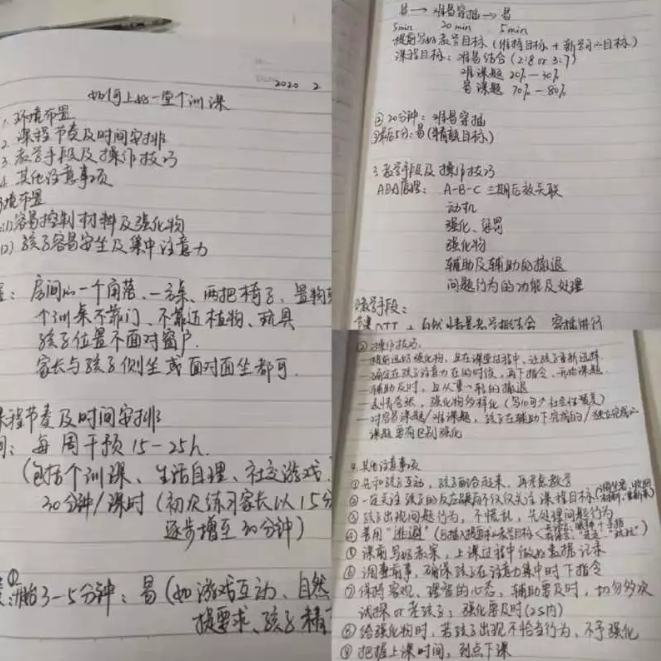 2020 2
如何上好一堂个训课
1. 环境布置
2. 课程节奏及时间安排
3. 教学手段及操作技巧
4. 其他注意事项
容易控制材料及强化物
孩子容易安坐及集中注意力
房间的一个角落、一桌、两把椅子、置物
个训桌不靠门、不靠近植物、玩具
孩子位置不面对窗户.
家长与孩子侧坐或面对面坐都可.
课程节奏及时间安排
每周干预 15-25h.
(包括个训课、生活自理、社交游戏
30分钟/课时 (初次练习家长以15分
逐步增至30分钟)
3-5分钟: 易 (如游戏互动、自然
提要求、孩子精
易 → 难易穿插 → 易
5min 20min 5min
提前写好教学目标 (维持目标 + 新学习目标)
课程目标: 难易结合 (2:8 or 3:7)
难课题 20%-30%
易课题 70%-80%
② 20分钟: 难易穿插
易 (精熟目标)
3. 教学手段及操作技巧
ABA原理: A-B-C 三期后效关联
动机
强化、惩罚
强化物
辅助及辅助的撤退
问题行为的功能及处理
教学手段:
② 操作技巧:
- 提前选好强化物, 且在课堂过程中, 让孩子重新选择
- 确定在孩子注意力在的时候, 再下指令、开始课题.
- 辅助及时, 且从第一轮的撤退
- 表情夸张, 强化物多样化
- 对容易课题/难课题, 孩子在辅助下完成的/独立完成的
课题要有区别强化
4. 其他注意事项
① 先和孩子互动, 孩子配合起来, 再考虑教学
② 一定关注孩子的反应跟着不仅仅关注课程目标
③ 孩子出现问题行为, 不慌乱, 先处理问题行为
④ 善用 "逃避"
⑤ 课前写好教案, 上课过程中做好数据记录
⑥ 调整前事, 确保孩子在注意力集中时下指令
⑦ 保持客观、理智的心态, 辅助要及时, 切勿多次
试探 or 考孩子; 强化要及时 (≤5内)
⑧ 给强化物时, 若孩子出现不恰当行为, 不予强化
⑨ 把握上课时间, 到点下课